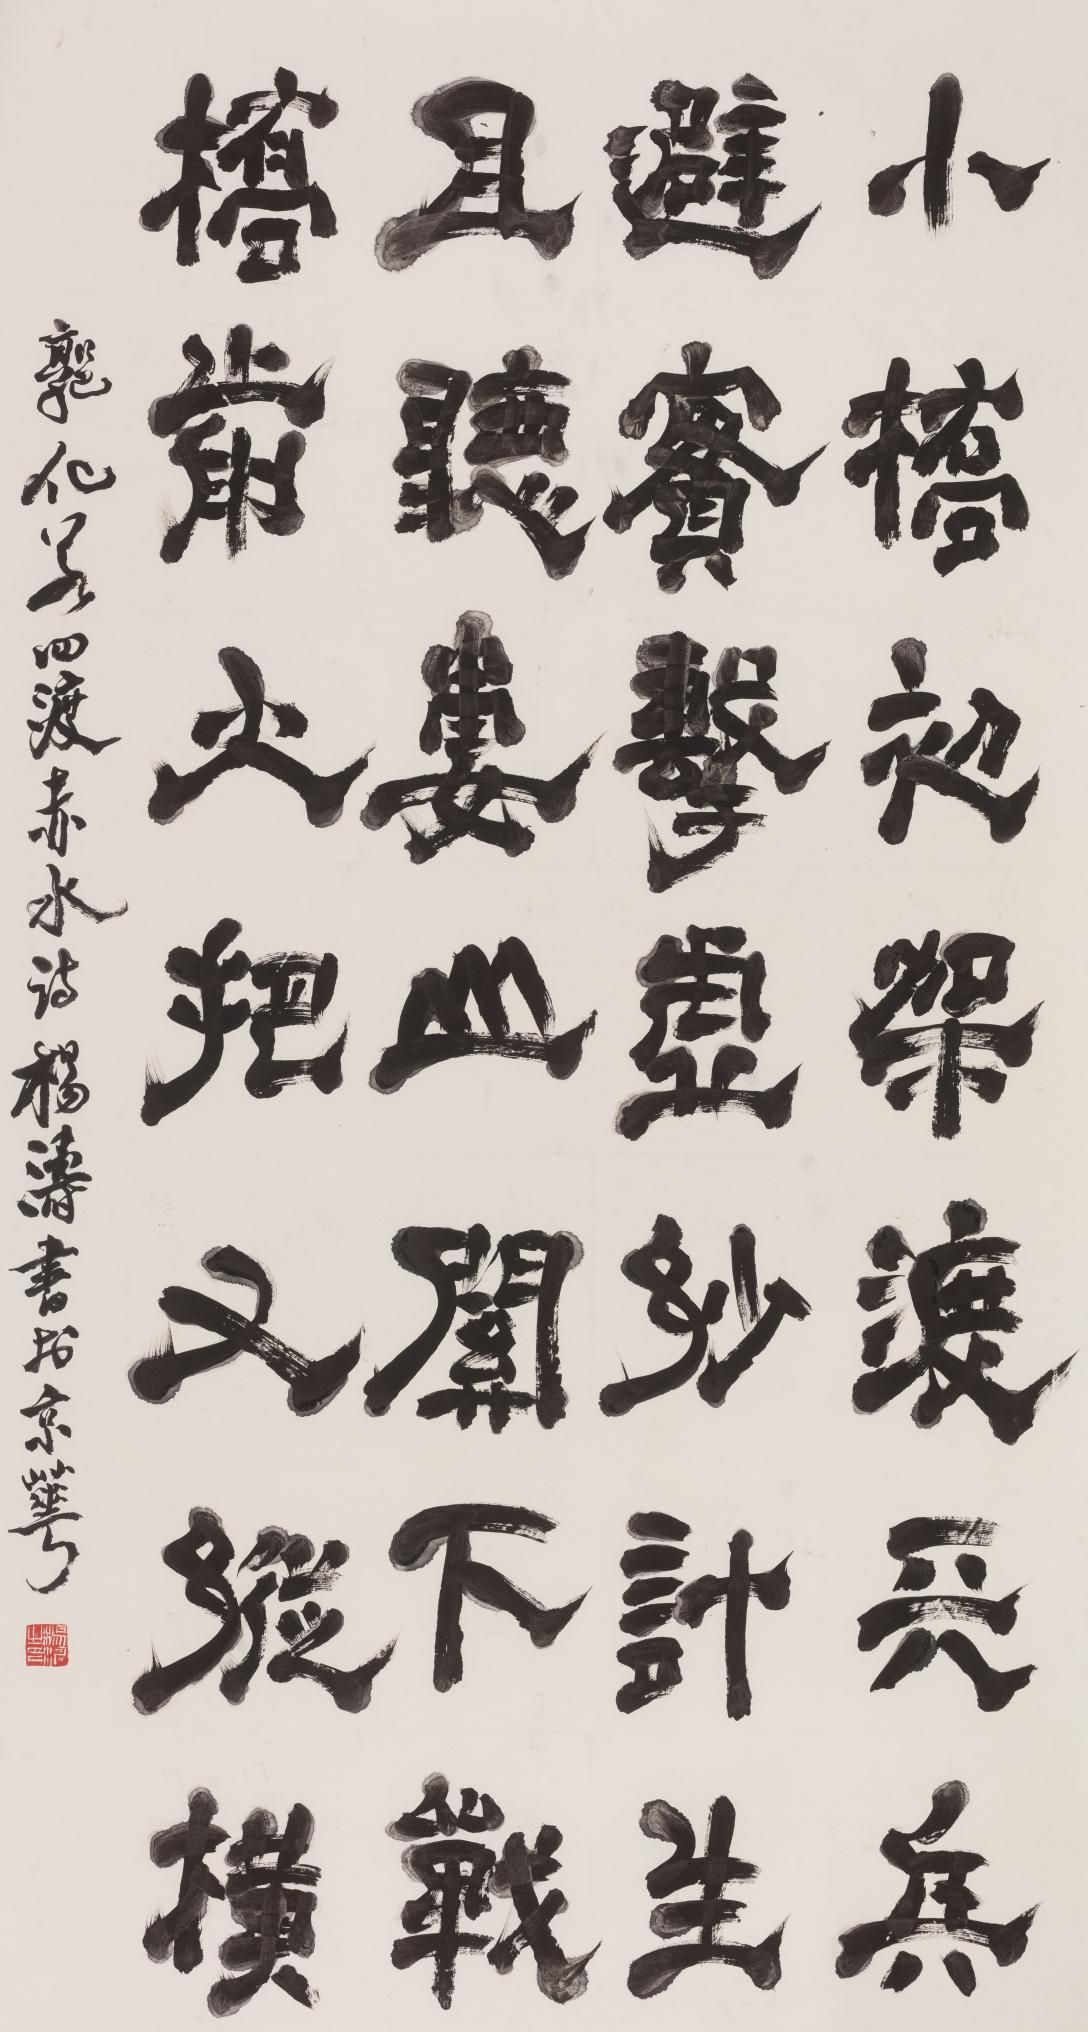 小橋初架渡天兵
避實擊虛妙計生
且聽婁山關下戰
橋前火把又縱橫
郭化若四渡赤水诗 楊濤書於京華